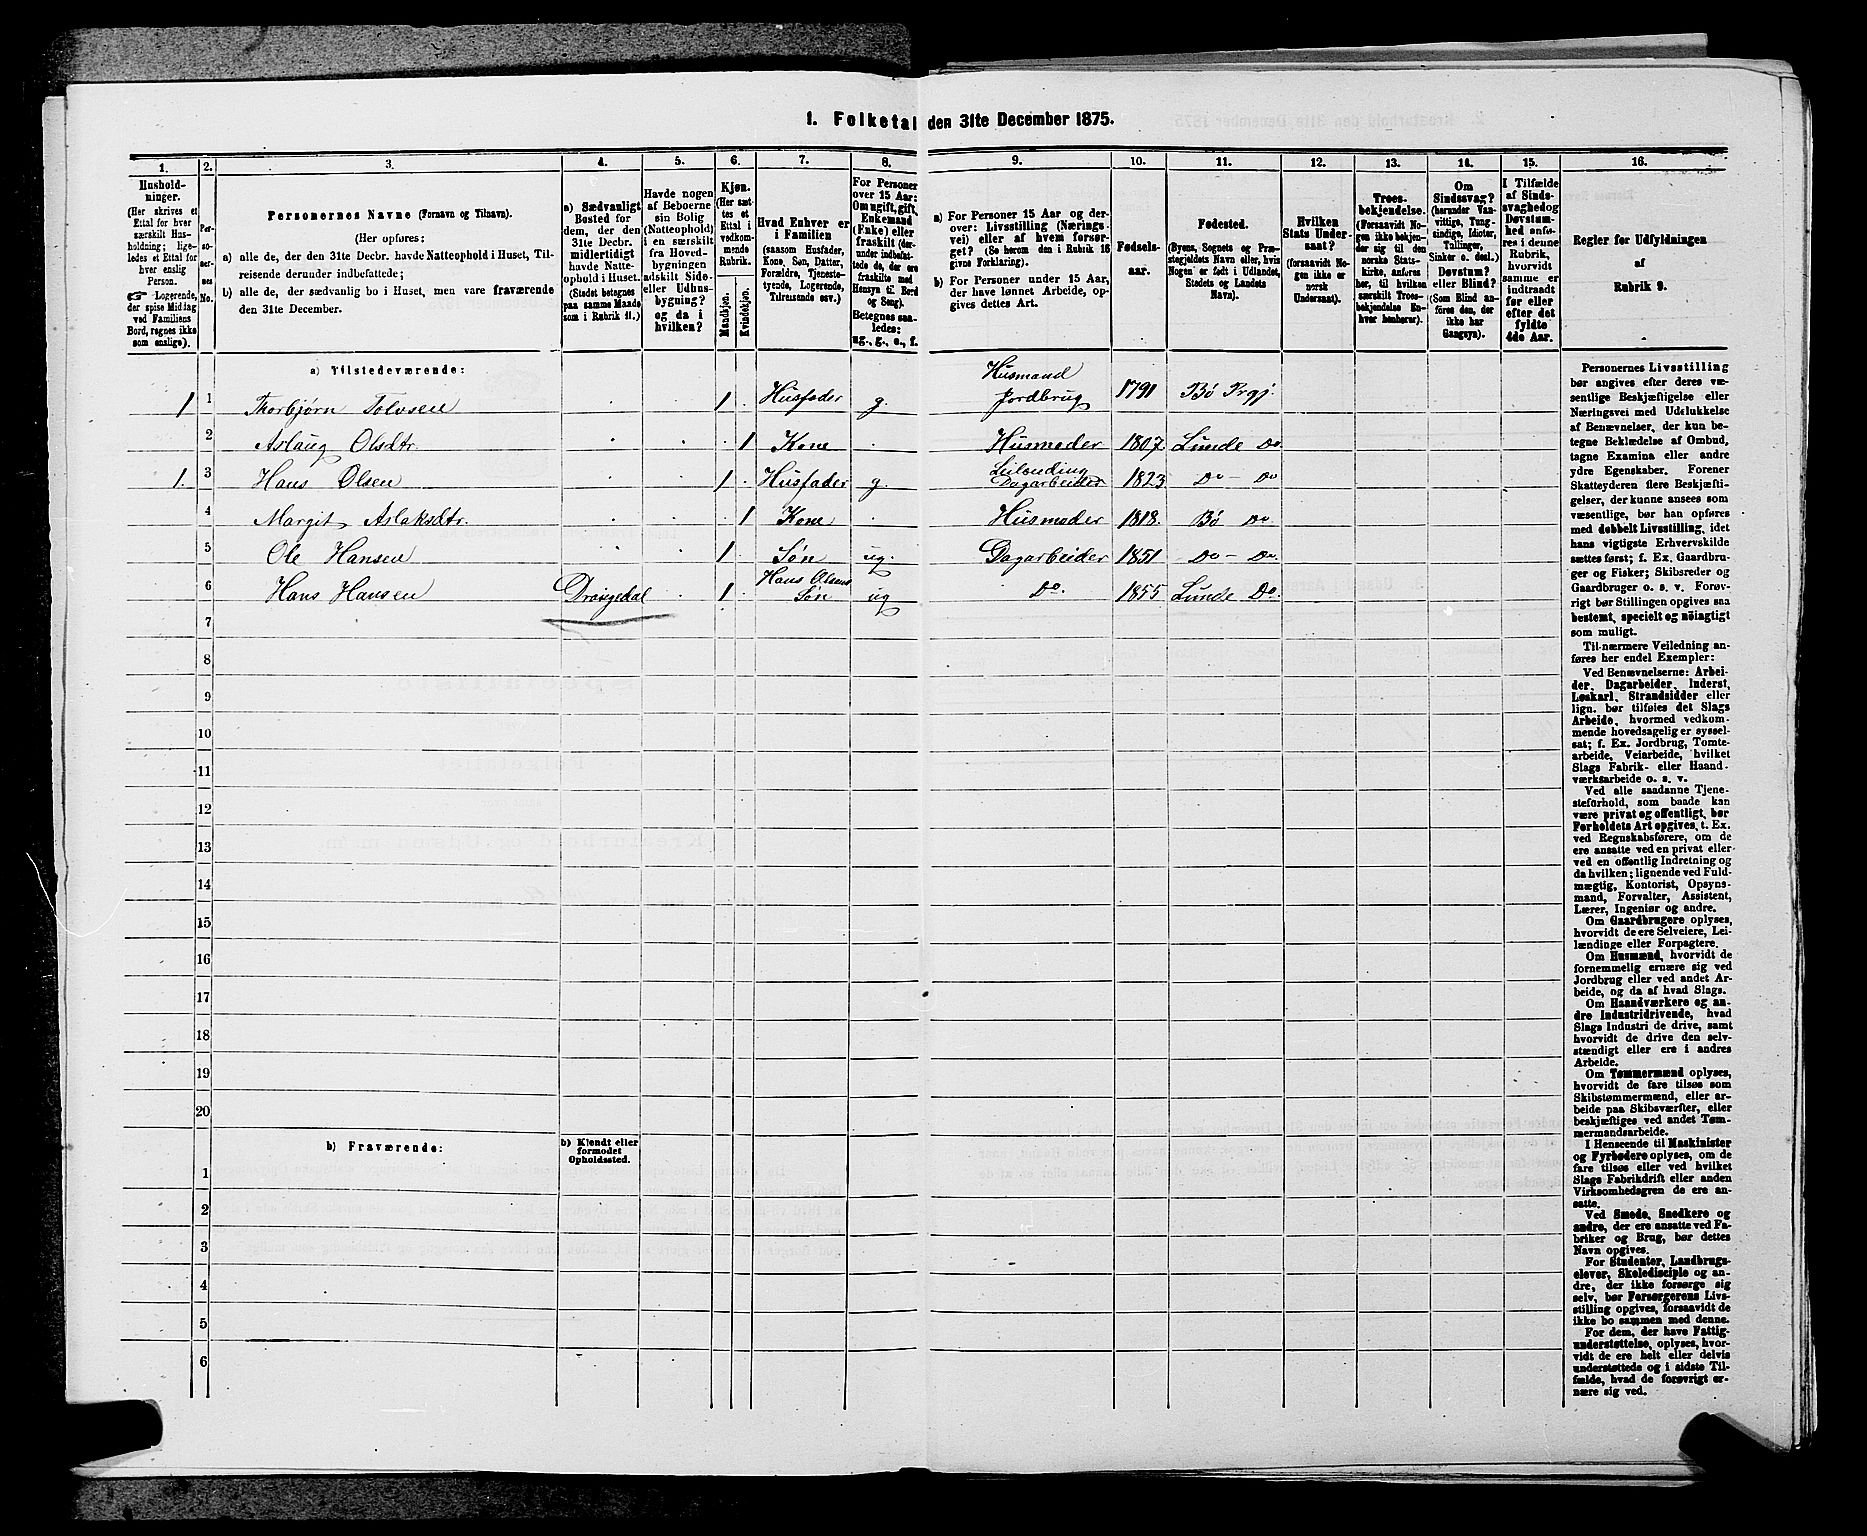 1. Folketal den 31te December 1875.
1. 2. 3. 4. 5. 6. 7. 8. 9. 10. 11. 12. 13. 14. 15. 16.
Hushold-
ninger.
(Her skrives et
Ettal for hver
særskilt Hus-
holdning; lige-
ledes et Ettal for
hver enslig
Person.
☞ Logerende,
der spise Middag
ved Familiens
Bord, regnes ikke
som enslige).
Per-
so-
ner-
nes
No.
Personernes Navne (Fornavn og Tilnavn).
(Her opføres:
a) alle de, der den 31te Decbr. havde Natteophold i Huset, Til-
reisende derunder indbefattede;
b) alle de, der sædvanlig bo i Huset, men vare fraværende
den 31te December.
a) Sædvanligt
Bosted for
dem, der den
31te Decbr.
midlertidigt
havde Natte-
ophold i Huset.
(Stedet betegnes
paa samme Maade
som i Rubrik 11.)
Havde nogen
af Beboerne
sin Bolig
(Natteophold)
i en særskilt
fra Hoved-
bygningen
adskilt Side-
eller Udhus-
bygning?
og da i
hvilken?
Kjøn.
(Her sæt-
tes et
Ettal i
vedkom-
mende
Rubrik.
Mandkjøn.
Kvindekjøn.
Hvad Enhver er
i Familien
(saasom Husfader,
Kone, Søn, Datter,
Forældre, Tjeneste-
tyende, Logerende,
Tilreisende osv.)
For Personer
over 15 Aar:
Om ugift, gift,
Enkemand
(Enke) eller
fraskilt (der-
under indbefat-
tede de, der ere
fraskilte med
Hensyn til Bord
og Seng).
Betegnes saa-
ledes:
ug., g., e., f.
a) For Personer 15 Aar og der-
over: Livsstilling (Nærings-
vei) eller af hvem forsør-
get? (Se herom den i Rubrik 16
givne Forklaring).
b) For Personer under 15 Aar,
der have lønnet Arbeide, op-
gives dettes Art.
Fødsels-
aar.
Fødested.
(Byens, Sognets og Præ-
stegjeldets Navn eller, hvis
Nogen er født i Udlandet,
Stedets og Landets
Navn).
Hvilken
Stats Under-
saat?
(forsaavidt No-
gen ikke er
norsk
Undersaat).
Troes-
bekjendelse.
(Forsaavidt No-
gen ikke bekjen-
der sig til den
norske Stats-
kirke, anføres
her, til hvilken
særskilt Troes-
bekjendelse En-
hver henhører).
Om
Sindssvag?
(herunder Van-
vittige, Tung-
sindige, Idioter,
Tullinger,
Sinker o. desl.)
Døvstum?
eller Blind?
(Som Blind an-
føres den, der
ikke har
Gangsyn).
I Tilfælde
af Sinds-
svaghed og
Døvstum-
hed anfø-
res i denne
Rubrik,
hvorvidt
samme er
indtraadt
før eller
efter det
fyldte
4de Aar.
Regler for Udfyldningen
af
Rubrik 9.
a) Tilstedeværende:
1 1 Thorbjørn Tolvsen 1 Husfader g. Husmand Jordbrug 1791 Bø Prgj.
2 Aslaug Olsdtr. 1 Kone Husmoder 1807. Lunde Do
1. 3 Hans Olsen 1 Husfader g. Leilending Dagarbeider 1823 Do - Do
4 Margit Aslaksdtr. 1 Kone Husmoder 1818. Bø Do
5 Ole Hansen 1 Søn ug. Dagarbeider 1851 Do - Do.
6 Hans Hansen Drangedal 1 Hans Olsens Søn ug Do. 1855 Lunde Do.
7
8
9
10
11
12
13
14
15
16
17
18
19
20
b) Fraværende:
b) Kjendt eller
formodet
Opholdssted.
1
2
3
4
5
6
Personernes Livsstilling
bør angives efter deres væ-
sentlige Beskjæftigelse eller
Næringsvei med Udelukkelse
af Benævnelser, der kun be-
tegne Beklædelse af Ombud,
tagne Examina eller andre
ydre Egenskaber. Forener
Skatteyderen flere Beskjæfti-
gelser, der kunne ansees som
væsentlige, bør han opføres
med dobbelt Livsstilling, idet
hans vigtigste Erhvervskilde
sættes først; f. Ex. Gaardbru-
ger og Fisker; Skibsreder og
Gaardbruger o. s. v. Forøv-
rigt bør Stillingen opgives saa
bestemt, specielt og nøiagtigt
som muligt.
Til nærmere Veiledning an-
føres her endel Exempler:
Ved Benævnelserne: Arbei-
der, Dagarbeider, Inderst,
Løskarl, Strandsidder eller
lign. bør tilføies det Slags
Arbeide, hvormed vedkom-
mende hovedsagelig er syssel-
sat; f. Ex. Jordbrug, Tomte-
arbeide, Veiarbeide, hvilket
Slags Fabrik- eller Haand-
værksarbeide o. s. v.
Ved alle saadanne Tjene-
steforhold, som baade kan
være privat og offentligt, bør
Forholdets Art opgives, t. Ex.
ved Regnskabsførere, om de
ere ansatte ved en privat eller
ved en offentlig Indretning og
da hvilken; lignende ved Fuld-
mægtig, Kontorist, Opsyns-
mand, Forvalter, Assistent,
Lærer, Ingeniør og andre.
Om Gaardbrugere oplyses,
hvorvidt de ere Selveiere, Lei-
lændinge eller Forpagtere.
Om Husmænd, hvorvidt de
fornemmelig ernære sig ved
Jordbrug eller ved andet Ar-
beide, og da af hvad Slags.
Om Haandværkere og an-
dre Industridrivende, hvad
Slags Industri de drive, samt
hvorvidt de drive den selv-
stændigt eller ere i andres
Arbeide.
Om Tømmermænd oplyses,
hvorvidt de fare tilsøs som
Skibstømmermænd, eller ar-
beide paa Skibsværfter, eller
beskjæftiges ved andet Tøm-
mermandsarbeide.
I Henseende til Maskinister
og Fyrbødere oplyses, om de
fare tilsøs eller ved hvilket
Slags Fabrikdrift eller anden
Virksomhedsgren de ere an-
satte.
Ved Smede, Snedkere og
andre, der ere ansatte ved Fa-
briker og Brug, bør dettes
Navn opgives.
For Studenter, Landbrugs-
elever, Skoledisciple og an-
dre, der ikke forsørge sig
selv, bør Forsørgerens Livs-
stilling opgives, forsaavidt de
ikke bo sammen med denne.
For dem, der have Fattig-
understøttelse, oplyses, hvor-
vidt de ere helt eller delvis
understøttede og i sidste Til-
fælde, hvad de forøvrigt er-
nære sig ved.